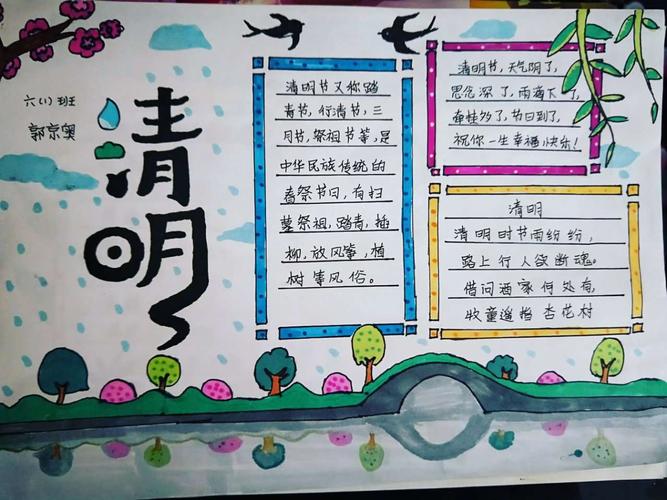 六(1)班
郭京奥
清明
清明节又称踏
青节,行清节,三
月节,祭祖节等,是
中华民族传统的
春祭节日,有扫
墓祭祖,踏青,插
柳,放风筝,植
树等风俗。
清明节,天气阴了,
思念深了,雨滴下了,
牵挂多了,节日到了,
祝你一生幸福快乐!
清明
清明时节雨纷纷,
路上行人欲断魂。
借问酒家何处有,
牧童遥指杏花村